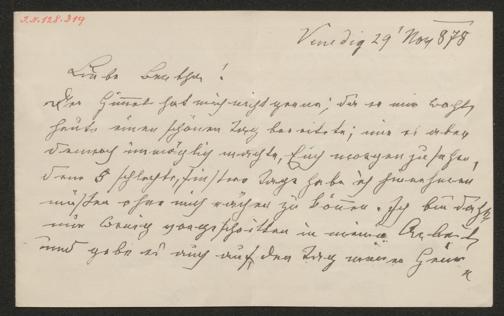 I.N. 128.319
Venedig 29' Nov 878
Liebe Bertha!
Der Himmel hat mich nicht gerne; da er mir wohl
heute einen schönen Tag bereitete; mir es aber
dennoch unmöglich machte, Euch morgen zu sehen,
denn 5 schlechte, finstere Tage habe ich hinnehmen
müssen ohne mich rächen zu können. Ich bin
nur wenig vorgeschritten in meiner Arbeit,
und gebe es auch auf, den Tag meiner